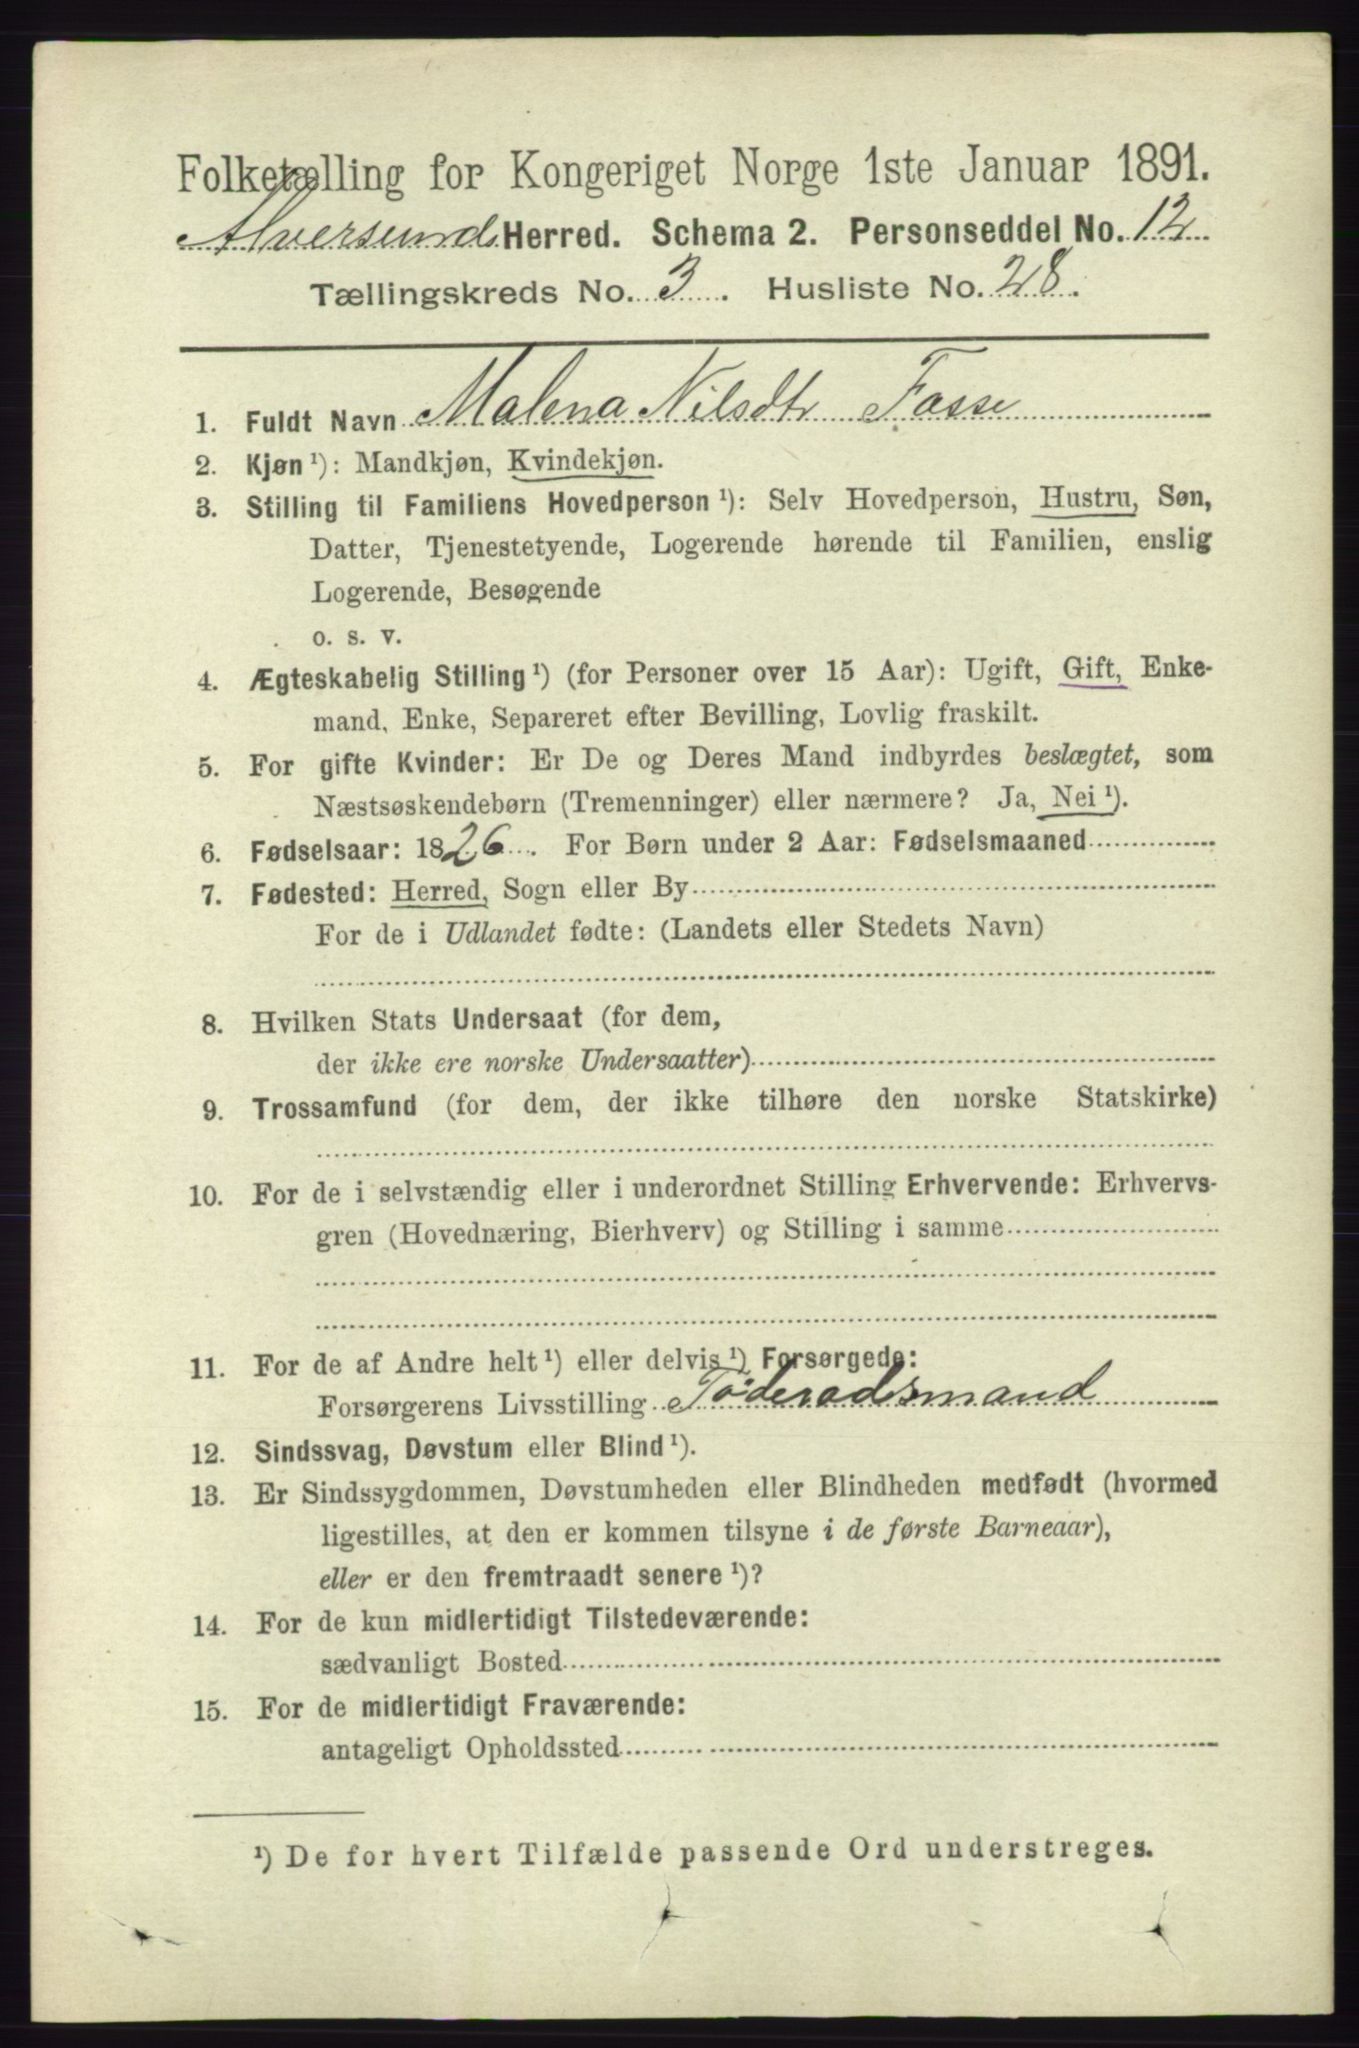 Folketælling for Kongeriget Norge 1ste Januar 1891.
Alversund Herred. Schema 2. Personseddel No. 12
Tællingskreds No. 3. Husliste No. 28.
1. Fuldt Navn Malena Nilsdtr Fosse
2. Kjøn ¹): Mandkjøn, Kvindekjøn.
3. Stilling til Familiens Hovedperson ¹): Selv Hovedperson, Hustru, Søn,
Datter, Tjenestetyende, Logerende hørende til Familien, enslig
Logerende, Besøgende
o. s. v.
4. Ægteskabelig Stilling ¹) (for Personer over 15 Aar): Ugift, Gift, Enke-
mand, Enke, Separeret efter Bevilling, Lovlig fraskilt.
5. For gifte Kvinder: Er De og Deres Mand indbyrdes beslægtet, som
Næstsøskendebørn (Tremenninger) eller nærmere? Ja, Nei ¹).
6. Fødselsaar: 1826. For Børn under 2 Aar: Fødselsmaaned
7. Fødested: Herred, Sogn eller By
For de i Udlandet fødte: (Landets eller Stedets Navn)
8. Hvilken Stats Undersaat (for dem,
der ikke ere norske Undersaatter)
9. Trossamfund (for dem, der ikke tilhøre den norske Statskirke)
10. For de i selvstændig eller i underordnet Stilling Erhvervende: Erhvervs-
gren (Hovednæring, Bierhverv) og Stilling i samme
11. For de af Andre helt ¹) eller delvis ¹) Forsørgede:
Forsørgerens Livsstilling Föderaadsmand
12. Sindssvag, Døvstum eller Blind ¹).
13. Er Sindssygdommen, Døvstumheden eller Blindheden medfødt (hvormed
ligestilles, at den er kommen tilsyne i de første Barneaar),
eller er den fremtraadt senere ¹)?
14. For de kun midlertidigt Tilstedeværende:
sædvanligt Bosted
15. For de midlertidigt Fraværende:
antageligt Opholdssted
¹) De for hvert Tilfælde passende Ord understreges.